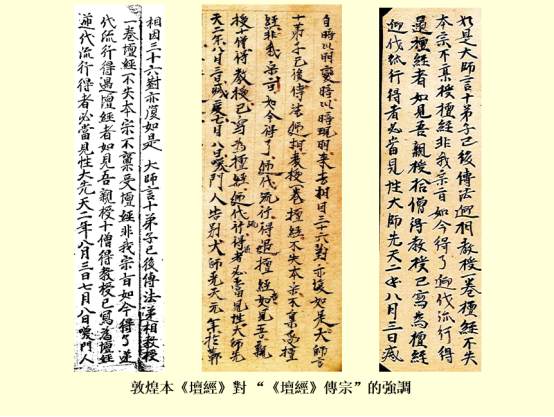 相因三十六對亦復如是 大師言十弟子已後傳法遞相教授
一卷壇經不失本宗不禀受壇經非我宗旨如今得了遞
代流行得遇壇經者如見吾親授十僧得教授已寫為壇經
遞代流行得者必當見性大先天二年八月三日七月八日喚門人
明變暗以暗現明来去相因三十六對亦復如是大師言
十弟子已後傳法迎相教授一卷壇經不失本宗不禀壇
經非我宗旨如今得了迎代流行得遇壇經者如見吾親
授十僧得教授已寫為壇經迎代流行得者必當見性大師先
天二年八月三日滅度七月八日喚門人告別大師先天元年於
如是大師言十弟子已後傳法迎相教授一卷壇經不失
本宗不禀授壇經非我宗旨如今得了迎代流行得
遇壇經者如見吾親授拾僧得教授已寫為壇經
迎代流行得者必當見性大師先天二年八月三日滅
敦煌本《壇經》對“《壇經》傳宗”的強調